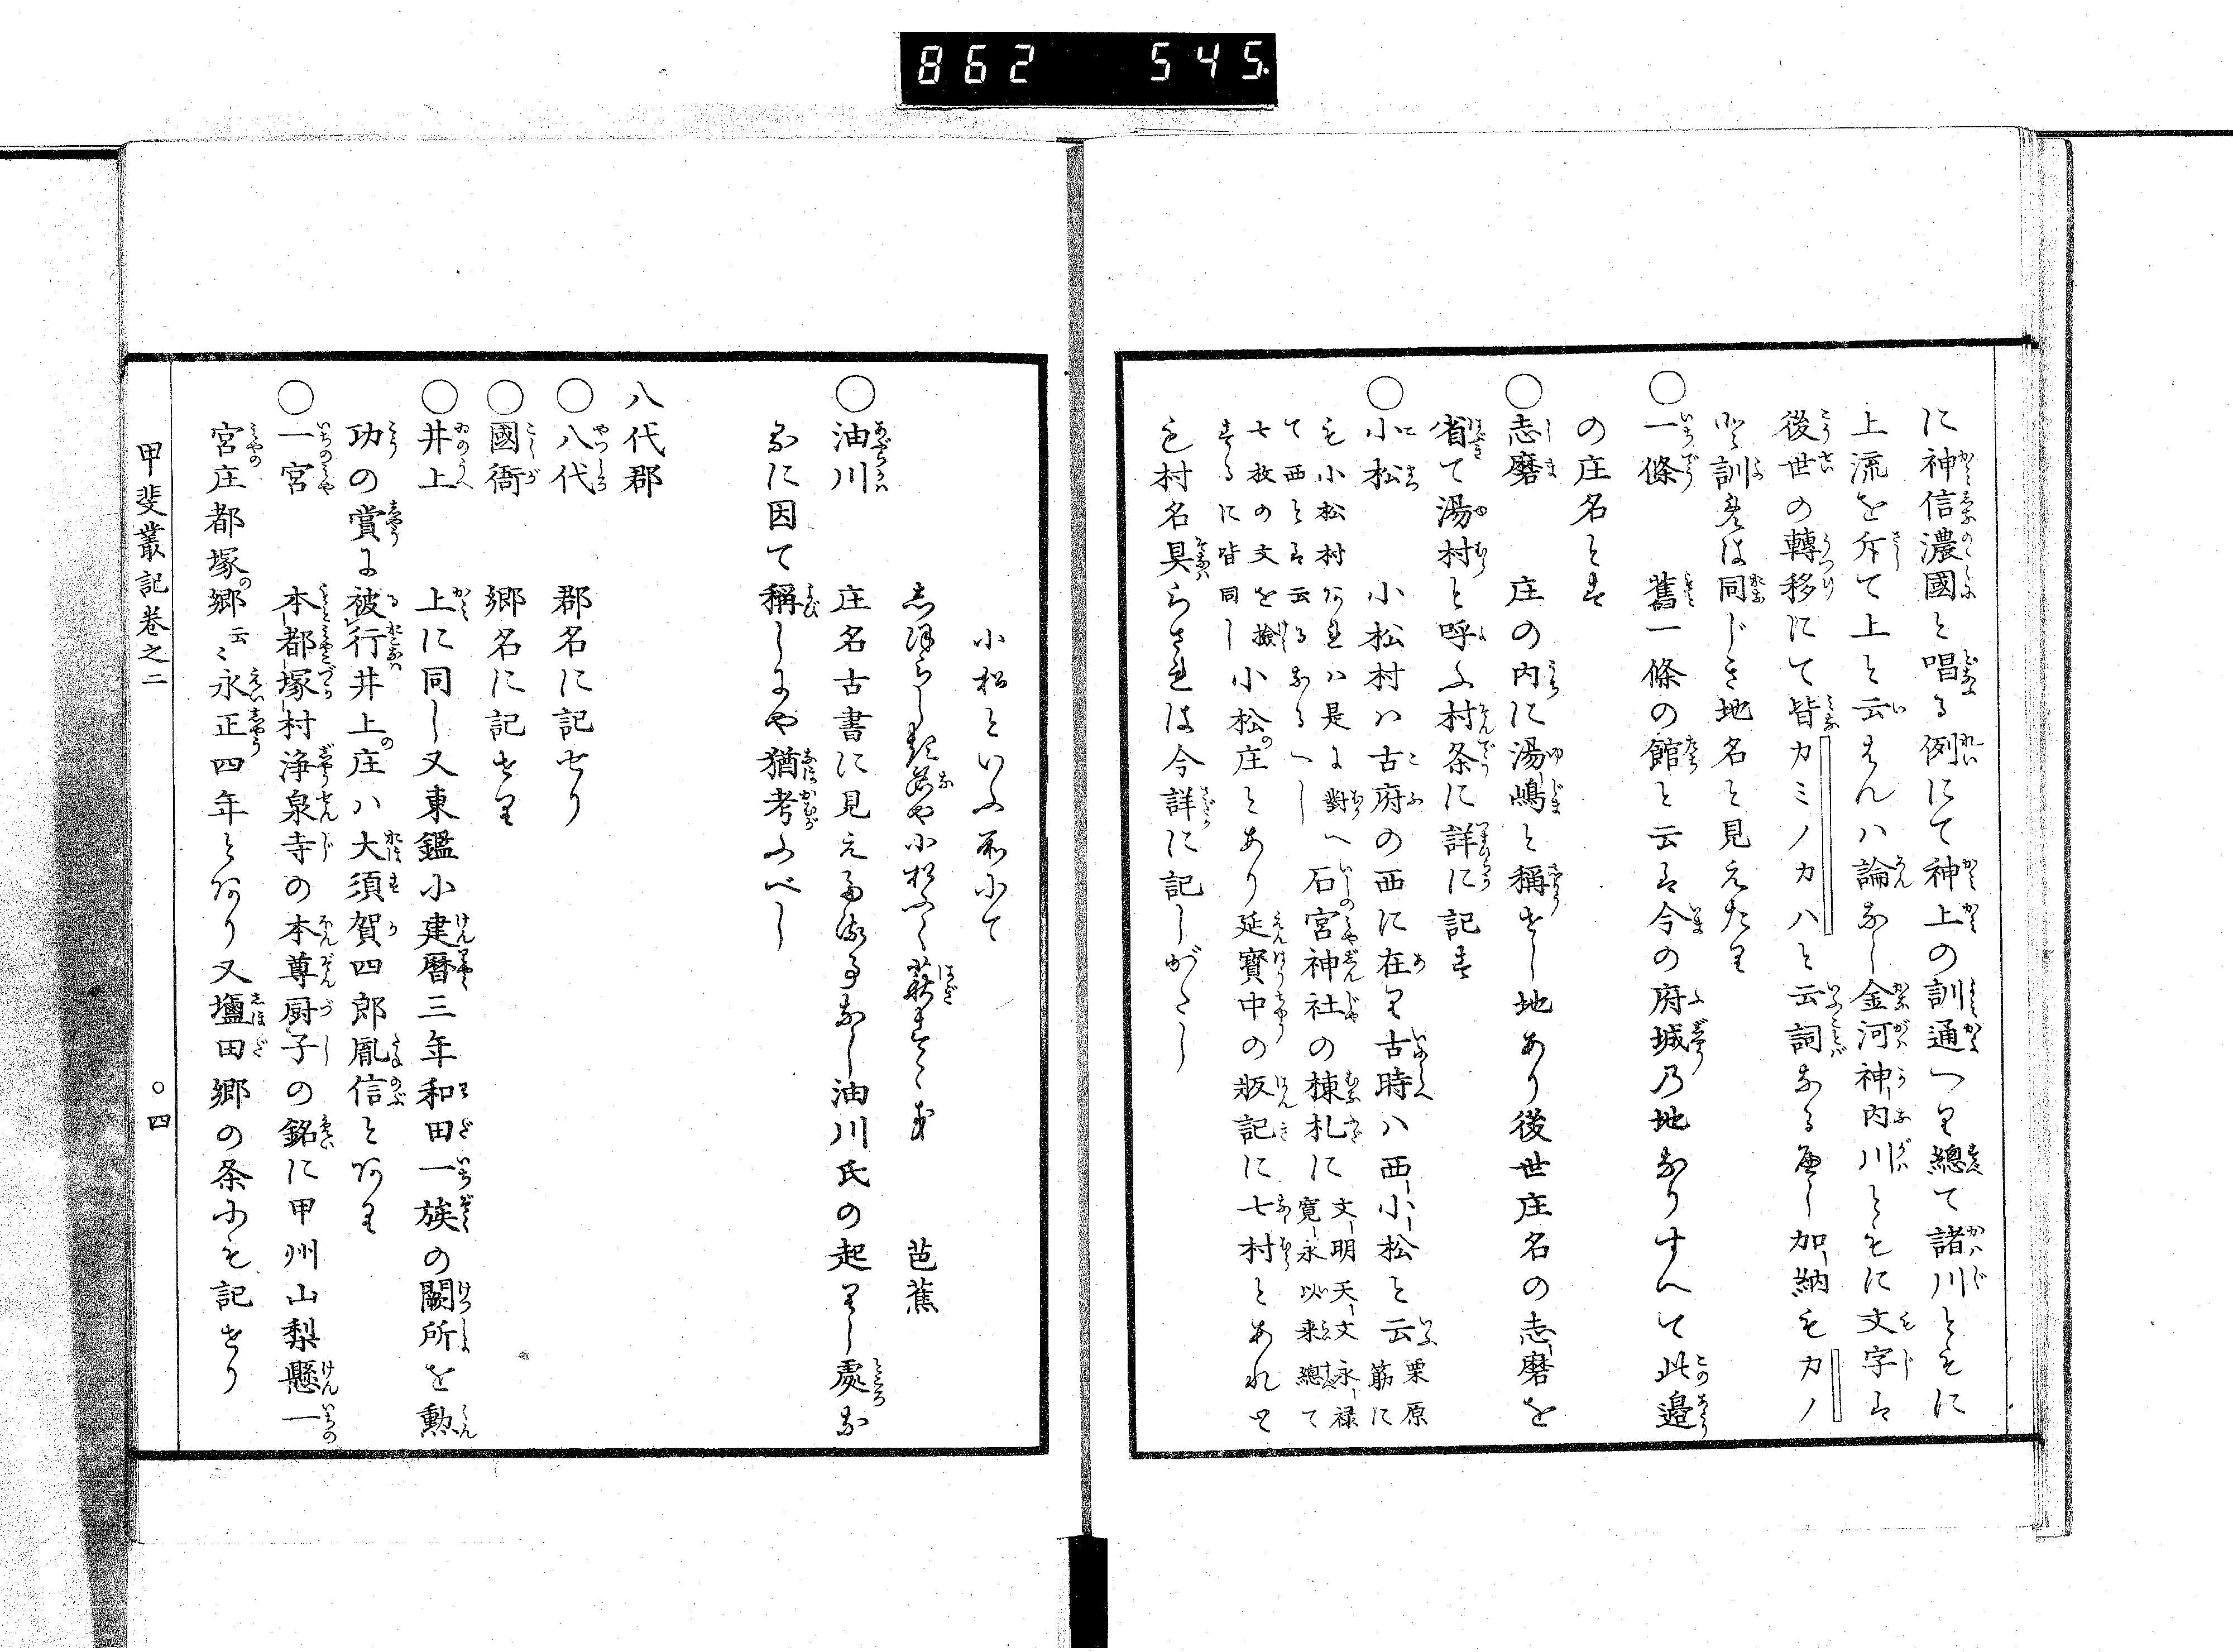 862 545.
に神信濃國と唱る例にて神上の訓通へり總て諸川ともに
上流を斥て上と云をんハ論なし金河神内川ともに文字は
後世の轉移にて皆カミノカハと云詞なるべし加納もカノ
と訓をは同じき地名と見えたり
○一條 舊一條の館と云は今の府城乃地なりすへて此邉
の庄名とす
○志磨 庄の内に湯嶋と稱せし地あり後世庄名の志磨を
省て湯村と呼ふ村条に詳に記す
○小松 小松村ハ古府の西に在り古時ハ西小松と云栗原筋に
も小松村アレハ是に對へて西とは云るなるへし石宮神社の棟札に文明天文永禄寛永以来總て
七枚の文を撿するに皆同し小松の庄とあり延寳中の板記に七村とあれと
も村名具らされは今詳に記しがたし
小松といふ所にて
しほらしき名や小松ふく萩すゝき 芭蕉
○油川 庄名古書に見えたる事なし油川氏の起りし處な
るに因て稱しにや猶考ふべし
八代郡
○八代 郡名に記せり
○國衙 郷名に記せり
○井上 上に同し又東鑑小建暦三年和田一族の闕所を勲
功の賞に被行井上の庄ハ大須賀四郎胤信とアリ
○一宮 本都塚村浄泉寺の本尊厨子の銘に甲州山梨懸一
宮庄都塚の郷云〻永正四年とアリ又鹽田郷の条にも記せり
甲斐叢記巻之二 ○四